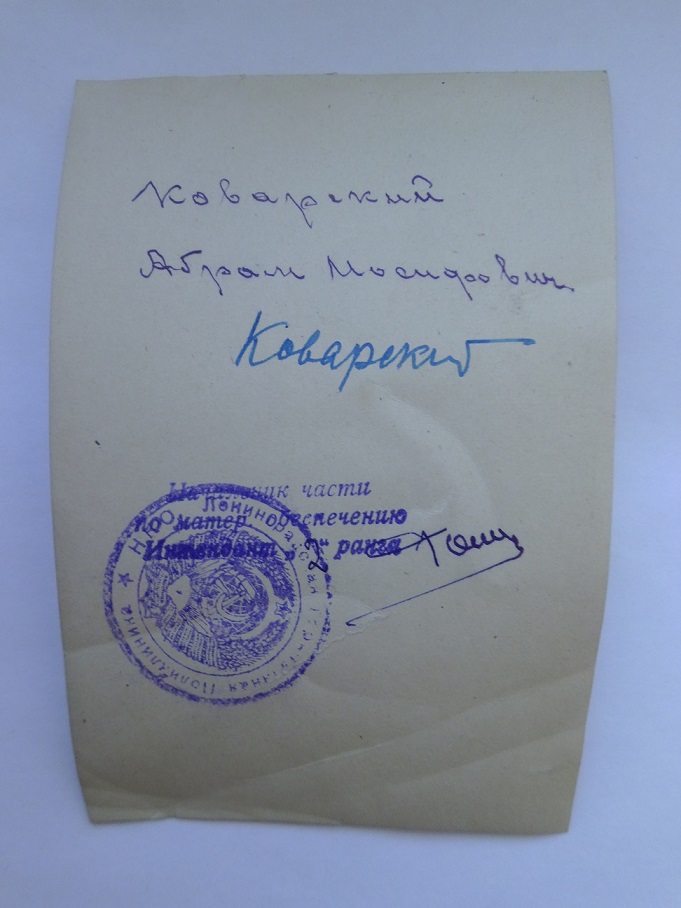 Коварский
Абрам Иосифович
Коварский
Начальник части
по матер. обеспечению
Интендант „2“ ранга
НКО Ленинградская Поликлиника